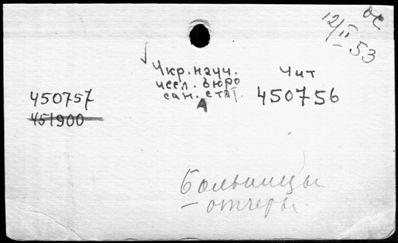 ос
12/II-53
Укр. науч.
иссл. бюро
сан. стат.
А
Чит
450757
450756
451900
Больницы
- отчеты